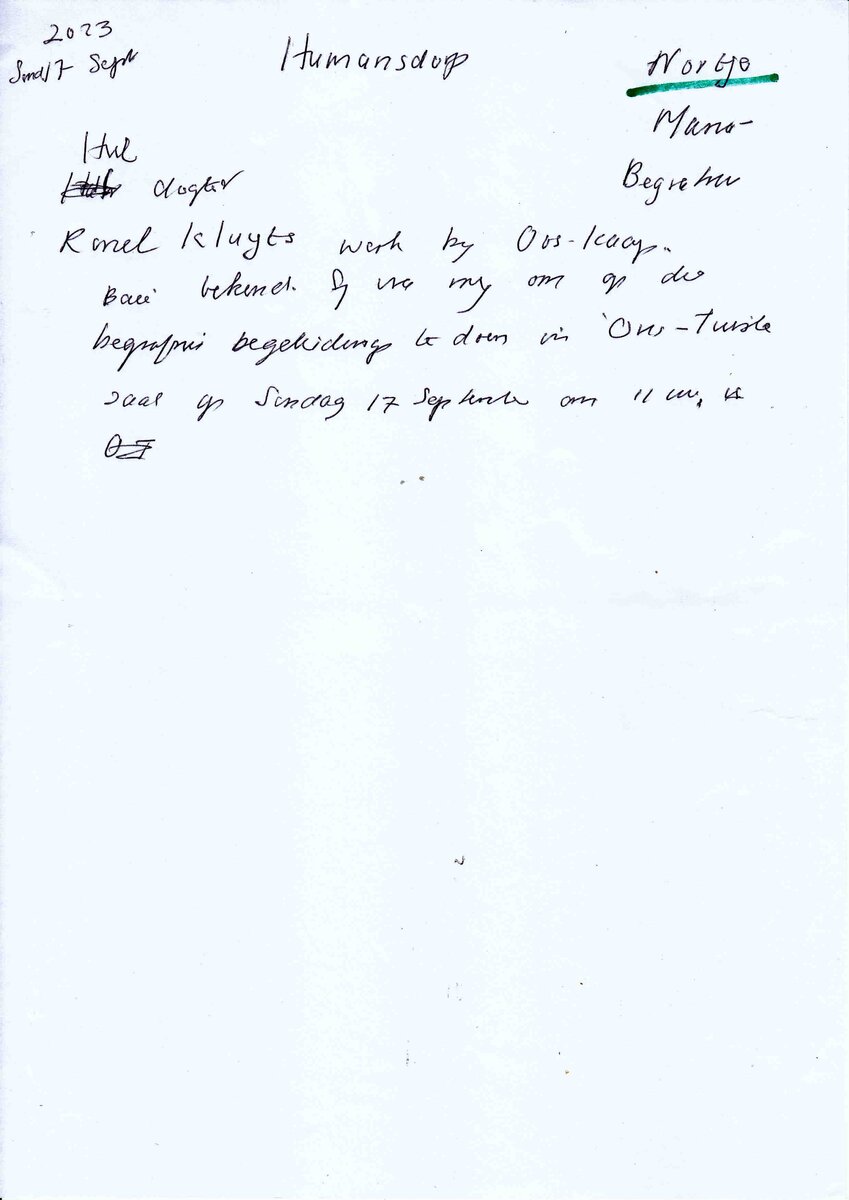 2023
Sond 17 Sept
Humansdorp
Nortje
Mano-
Begrafnis
Hul
dogter
Ronel Kluyts werk by Oos-Kaap.
Baie bekend. Sy vra my om op die
begrafnis begeleiding te doen in 'Ons-Tuiste
saal op Sondag 17 September om 11 uur,